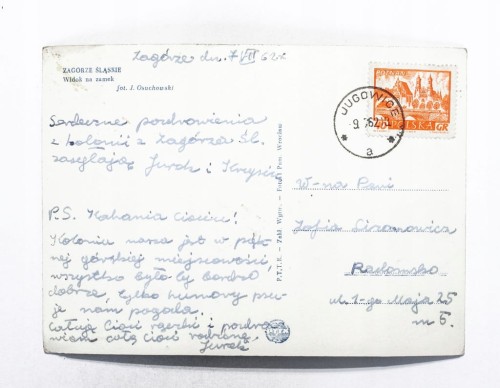 Zagórze dn. 7 VII 62r.
ZAGÓRZE ŚLĄSKIE
Widok na zamek
fot. J. Osuchowski
Serdeczne pozdrowienia
z kolonii z Zagórza Śl.
zasyłają Jurek i Krysia
P.S. Kochana Ciociu!
Kolonia nasza jest w pięk
nej górskiej miejscowości,
wszystko było by bardzo
dobrze, tylko humory psu-
je nam pogoda.
Całuję Cioci rączki i pozdra
wiam całą Cioci rodzinę.
Jurek
P.T.T.K. — Zakł. Wytw. — Fotos Pam. Wrocław
POZNAŃ
POLSKA GR
JUGOWICE
a
W-na Pani
Zofia
Radomsko
ul. 1-go Maja 25
m 5.